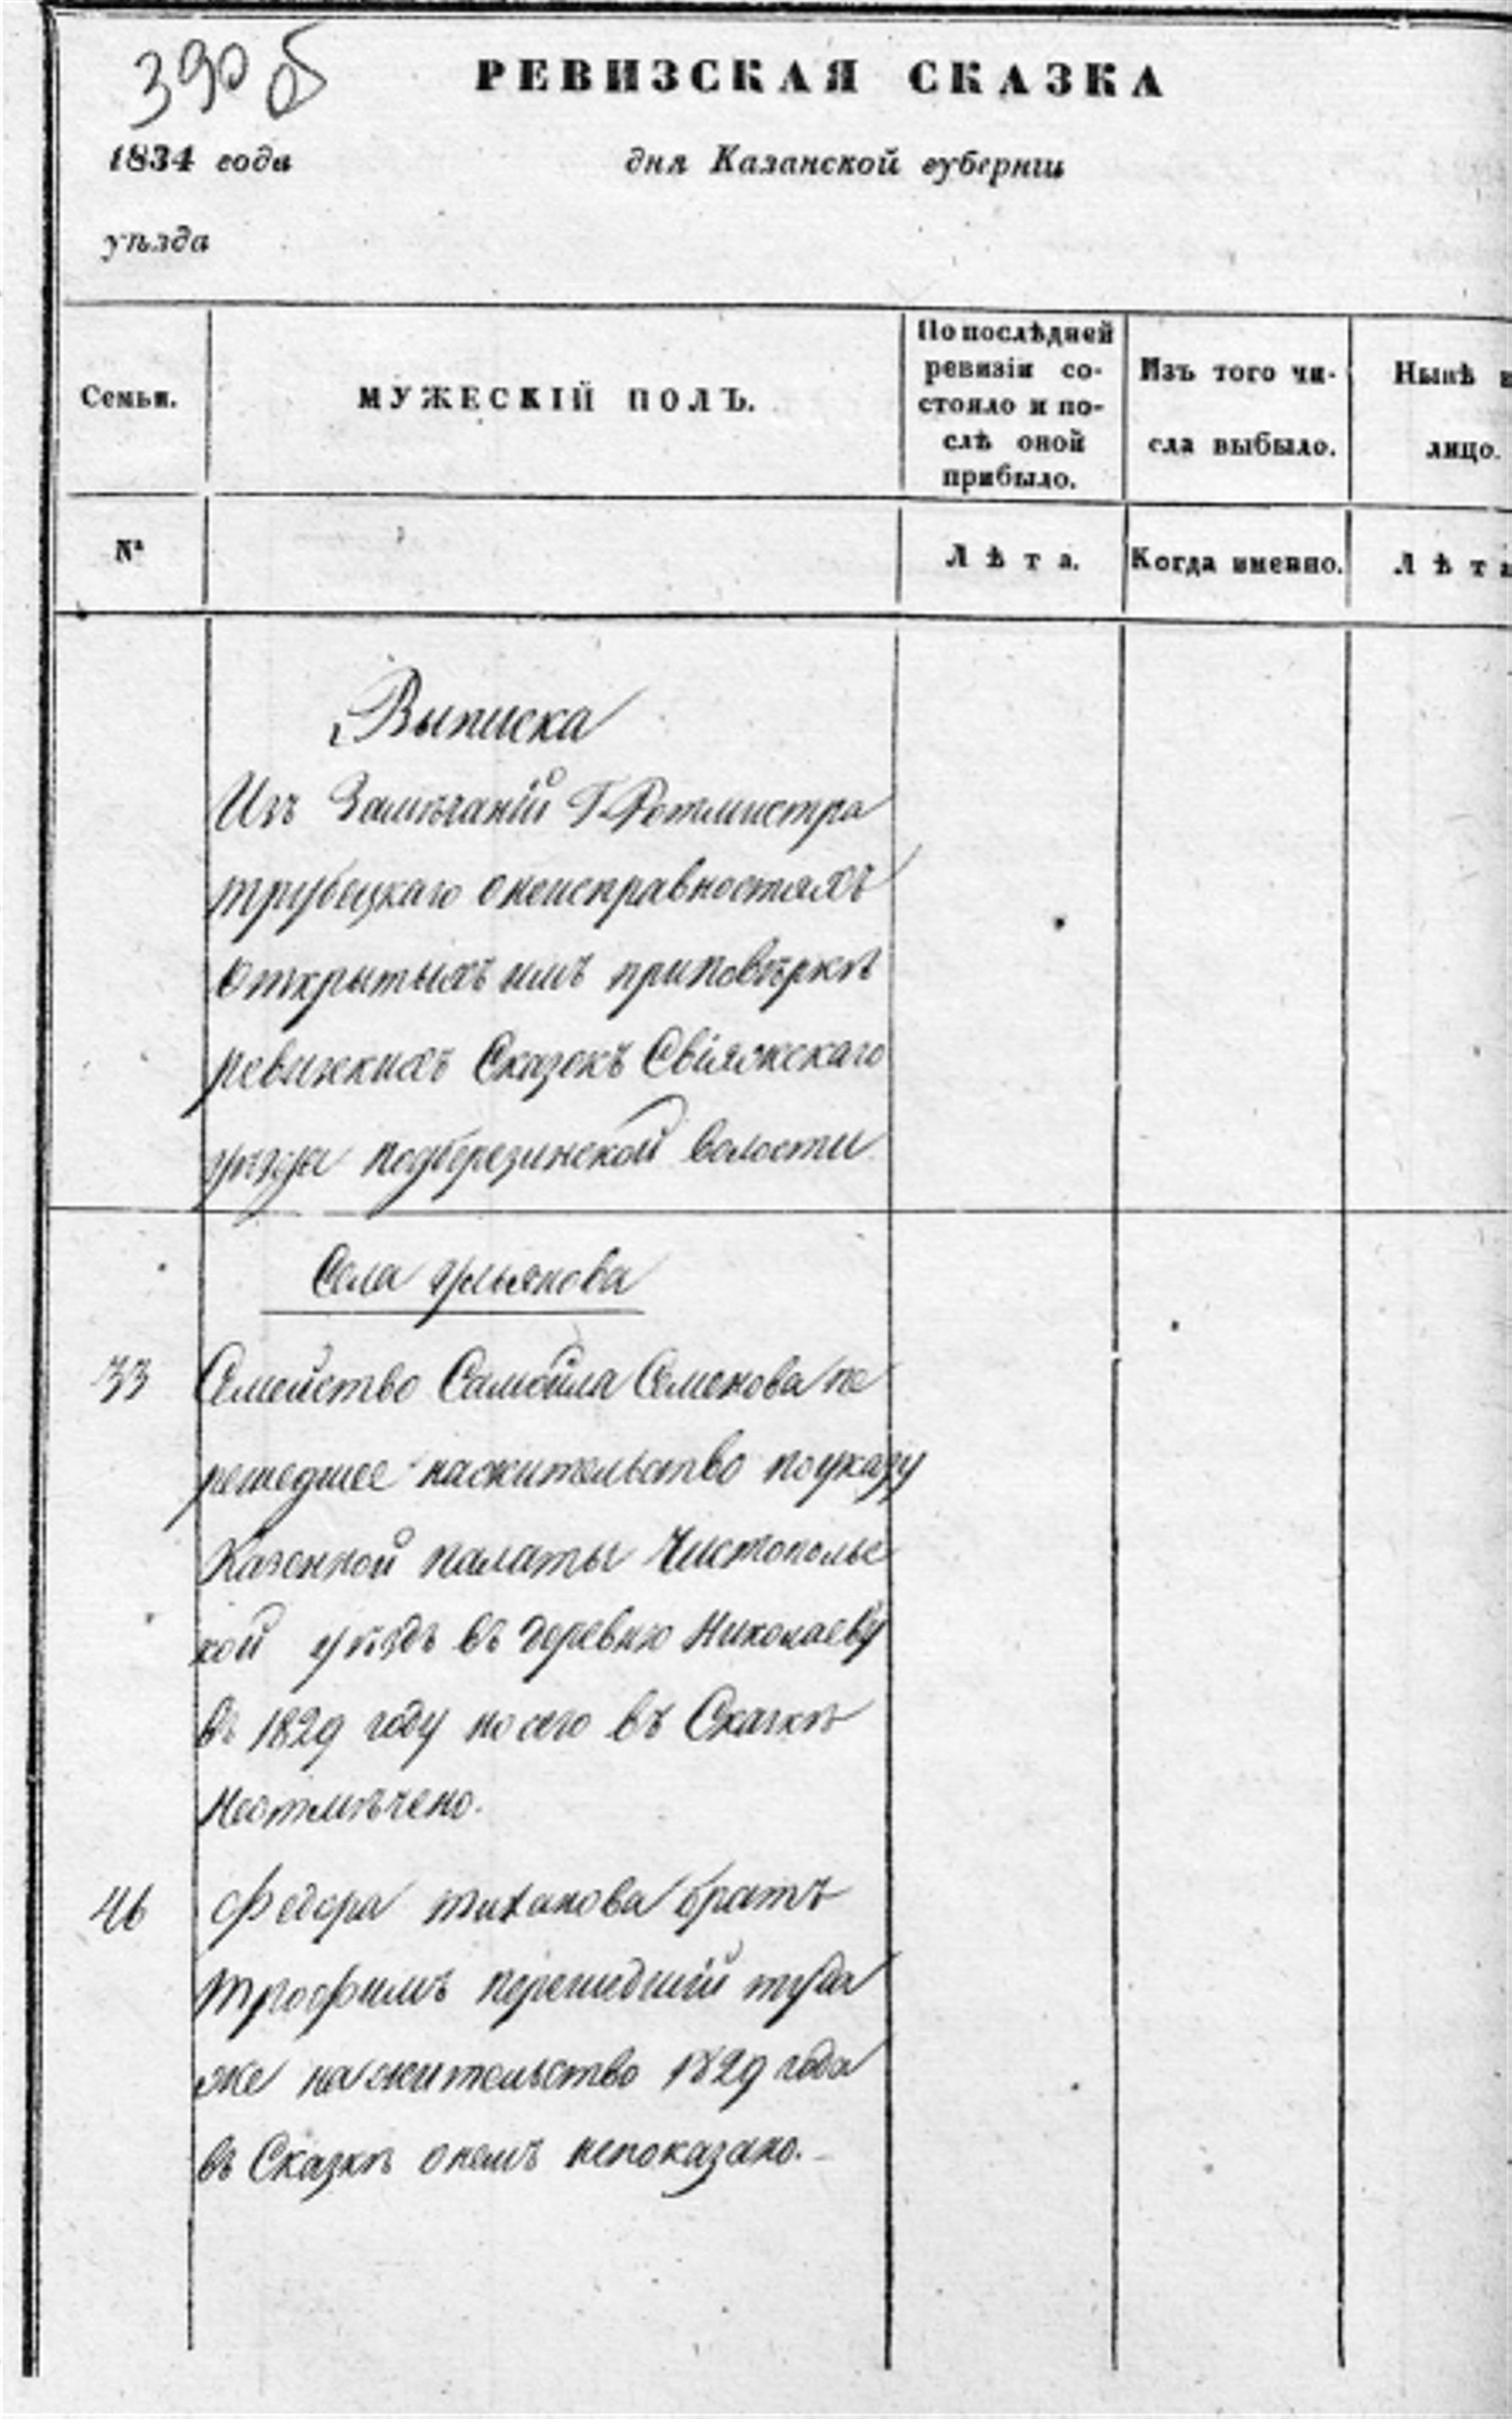 390 об
РЕВИЗСКАЯ СКАЗКА
1834 года дня Казанской губерніи
уѣзда
Семьи. МУЖЕСКІЙ ПОЛЪ. По послѣдней ревизіи со- стояло и по- слѣ оной прибыло. Изъ того чи- сла выбыло. Нынѣ лицо.
№ Лѣта. Когда именно. Лѣта
Выписка
Изъ Замѣчаній Г. Ротмистра
трубецкаго онеисправностяхъ
Открытыхъ имъ приповѣркѣ
ревизкихъ Сказокъ Свіяжскаго
уѣзда подберезинской волости
Села
33 Семейство Самойла Семенова пе
решедшее нажительство поуказу
Казенной палаты Чистопольс
кой уѣздъ въ деревню Николаеву
въ 1829 году но сего въ Сказкѣ
Неотмѣчено.
46 Федора тиханова братъ
трофимъ перешедшій туда
же нажительство 1829 года
въ Сказкѣ онемъ непоказано.